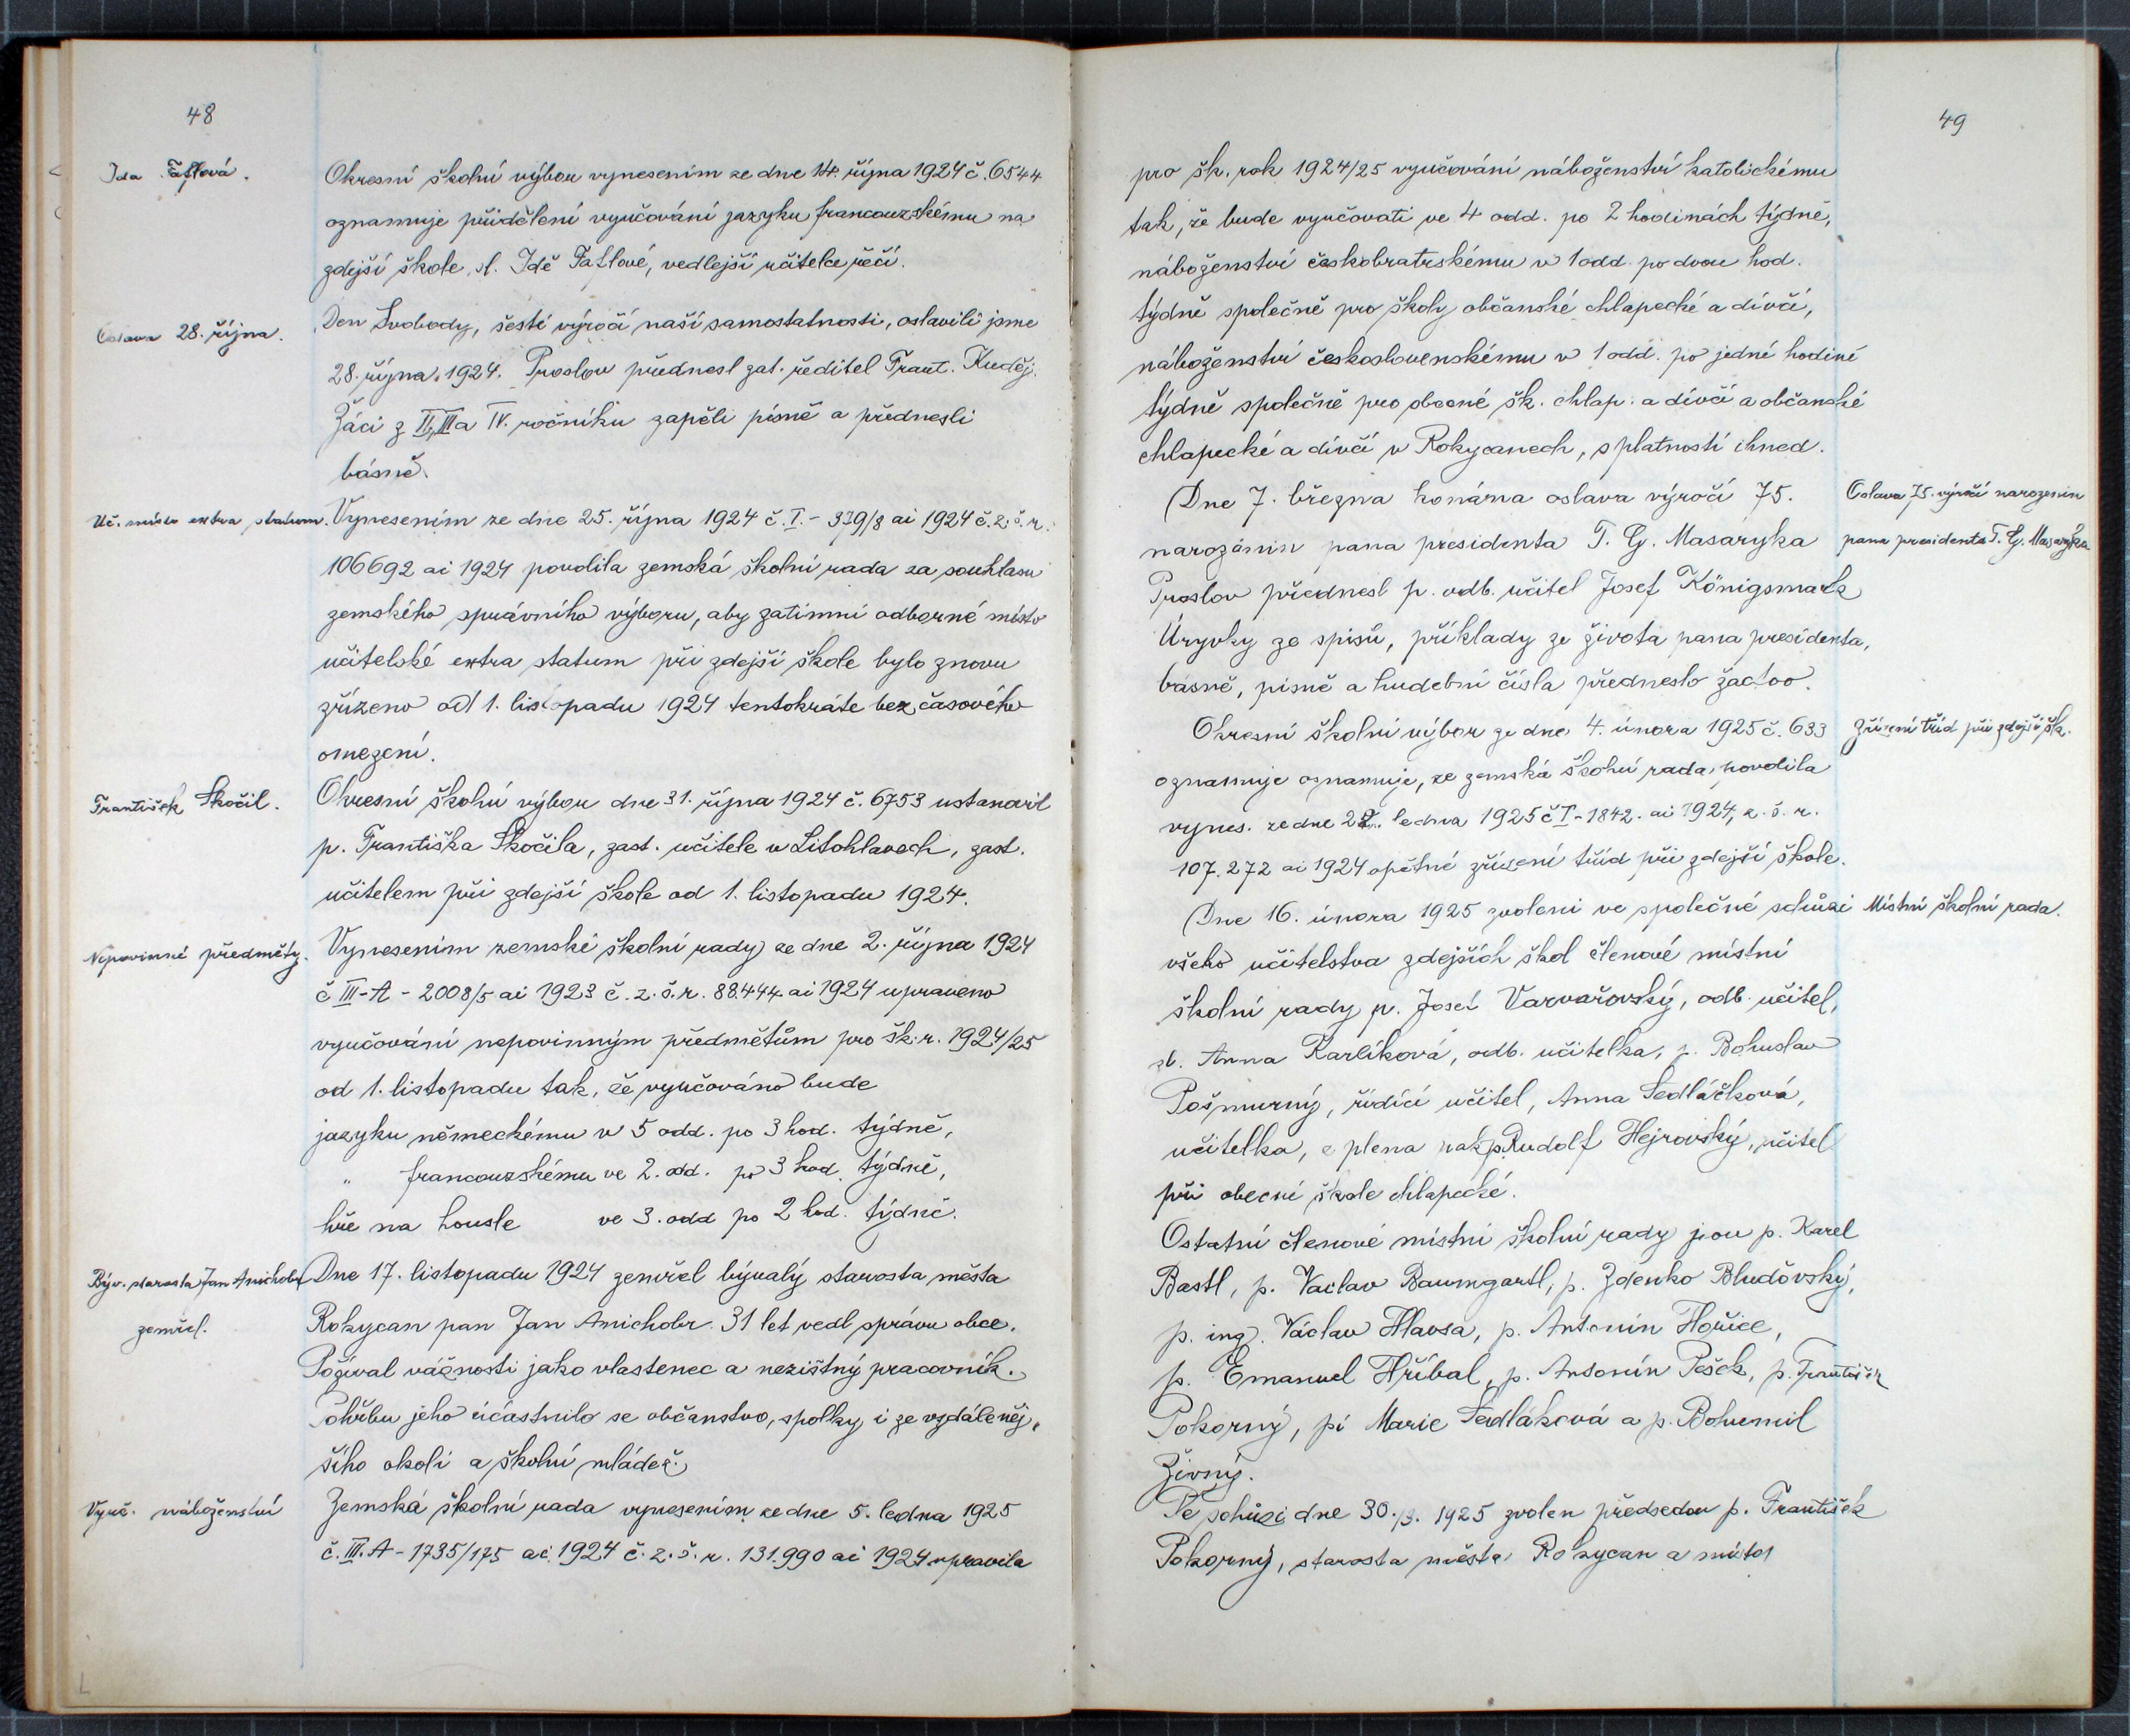 48
Ida Fatlová.
Okresní školní výbor vynesením ze dne 14. října 1924 č. 6544
oznamuje přidělení vyučování jazyku francouzskému na
zdejší škole, sl. Idě Fatlové, vedlejší učitelce řečí.
Oslava 28. října.
Den Svobody, šesté výročí naší samostatnosti, oslavili jsme
28. října 1924. Proslov přednesl zat. ředitel Frant. Kuděj.
Žáci z II, III a IV. ročníku zapěli písně a přednesli
básně.
Uč. místo extra statum.
Vynesením ze dne 25. října 1924 č. I. - 379/8 ai 1924 č. z. š. r.
106692 ai 1924 povolila zemská školní rada za souhlasu
zemského správního výboru, aby zatimní odborné místo
učitelské extra statum při zdejší škole bylo znovu
zřízeno od 1. listopadu 1924 tentokráte bez časového
omezení.
František Skočil.
Okresní školní výbor dne 31. října 1924 č. 6753 ustanovil
p. Františka Skočila, zast. učitele v Litohlavech, zast.
učitelem při zdejší škole od 1. listopadu 1924.
Nepovinné předměty.
Vynesením zemské školní rady ze dne 2. října 1924
č III-A - 2008/5 ai 1923 č. z. š. r. 88.444 ai 1924 upraveno
vyučování nepovinným předmětům pro šk. r. 1924/25
od 1. listopadu tak, že vyučováno bude
jazyku německému v 5 odd. po 3 hod. týdně,
" francouzskému ve 2. odd. po 3 hod. týdně,
hře na housle ve 3. odd po 2 hod. týdně.
Býv. starosta Jan Amichobr
zemřel.
Dne 17. listopadu 1924 zemřel bývalý starosta města
Rokycan pan Jan Amichobr. 31 let vedl správu obce.
Požíval vážnosti jako vlastenec a nezištný pracovník.
Pohřbu jeho účastnilo se občanstvo, spolky i ze vzdáleněj,
šího okolí a školní mládež.
Vyuč. náboženství
Zemská školní rada vynesením ze dne 5. ledna 1925
č. III. A - 1735/175 ai 1924 č. z. š. r. 131.990 ai 1924 upravila
49
pro šk. rok 1924/25 vyučování náboženství katolickému
tak, že bude vyučovati ve 4 odd. po 2 hodinách týdně,
náboženství českobratrskému v 1 odd. po dvou hod.
týdně společně pro školy občanské chlapecké a dívčí,
náboženství československému v 1 odd. po jedné hodině
týdně společně pro obecné šk. chlap. a dívčí a občanské
chlapecké a dívčí v Rokycanech, s platností ihned.
Dne 7. března konána oslava výročí 75.
Oslava 75. výročí narozenin
narozenin pana presidenta T. G. Masaryka
pana presidenta T. G. Masaryka
Proslov přednesl p. odb. učitel Josef Königsmark
Úryvky ze spisů, příklady ze života pana presidenta,
básně, písně a hudební čísla předneslo žactvo.
Okresní školní výbor ze dne 4. února 1925 č. 633
Zřízení tříd při zdejší šk.
oznamuje oznamuje, že zemská školní rada povolila
vynes. ze dne 22. ledna 1925 č I - 1842. ai 1924, z. š. r.
107.272 ai 1924 opětné zřízení tříd při zdejší škole.
Dne 16. února 1925 zvoleni ve společné schůzi
Místní školní rada.
všeho učitelstva zdejších škol členové místní
školní rady p. Josef Varvařovský, odb. učitel,
sl. Anna Karlíková, odb. učitelka, p. Bohuslav
Pošmurný, řídící učitel, Anna Sedláčková,
učitelka, z plena pak p. Rudolf Hejrovský, učitel
při obecné škole chlapecké.
Ostatní členové místní školní rady jsou p. Karel
Bastl, p. Václav Baumgartl, p. Zdenko Bludovský,
p. ing. Václav Hlavsa, p. Antonín Hořice,
p. Emanuel Hříbal, p. Antonín Pešek, p. František
Pokorný, pí Marie Sedláková a p. Bohumil
Živný.
Ve schůzi dne 30./3. 1925 zvolen předsedou p. František
Pokorný, starosta města Rokycan a místo